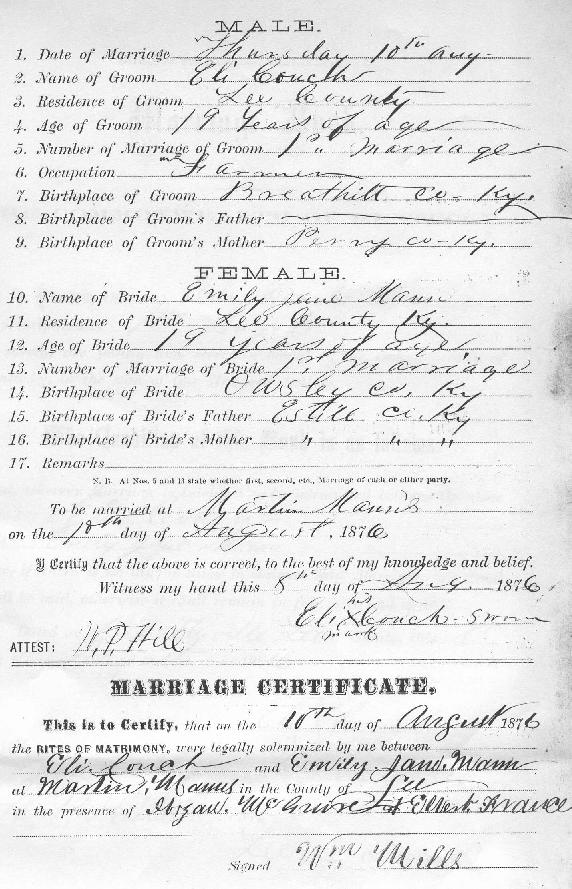 MALE.
1. Date of Marriage Thursday 10th Aug
2. Name of Groom Eli Couch
3. Residence of Groom Lee County
4. Age of Groom 19 Years of age
5. Number of Marriage of Groom 1st Marriage
6. Occupation Farmer
7. Birthplace of Groom Breathitt co. Ky.
8. Birthplace of Groom's Father
9. Birthplace of Groom's Mother Perry co. Ky.
FEMALE.
10. Name of Bride Emily Jane Mann
11. Residence of Bride Lee County Ky.
12. Age of Bride 19 years of age
13. Number of Marriage of Bride 1st marriage
14. Birthplace of Bride Owsley co, Ky
15. Birthplace of Bride's Father Estill co. Ky
16. Birthplace of Bride's Mother " " "
17. Remarks
N. B. At Nos. 5 and 13 state whether first, second, etc., Marriage of each or either party.
To be married at Martin Mann's
on the 10th day of August, 1876
I Certify that the above is correct, to the best of my knowledge and belief.
Witness my hand this 8th day of Aug 1876,
his
Eli X Couch - Sworn
mark
ATTEST: W. P. Hill
MARRIAGE CERTIFICATE.
This is to Certify, that on the 10th day of August 1876
the RITES OF MATRIMONY, were legally solemnized by me between
Eli Couch and Emily Jane Mann
at Martin Manns in the County of Lee
in the presence of McGuire & Elbert
Signed Wm Mills